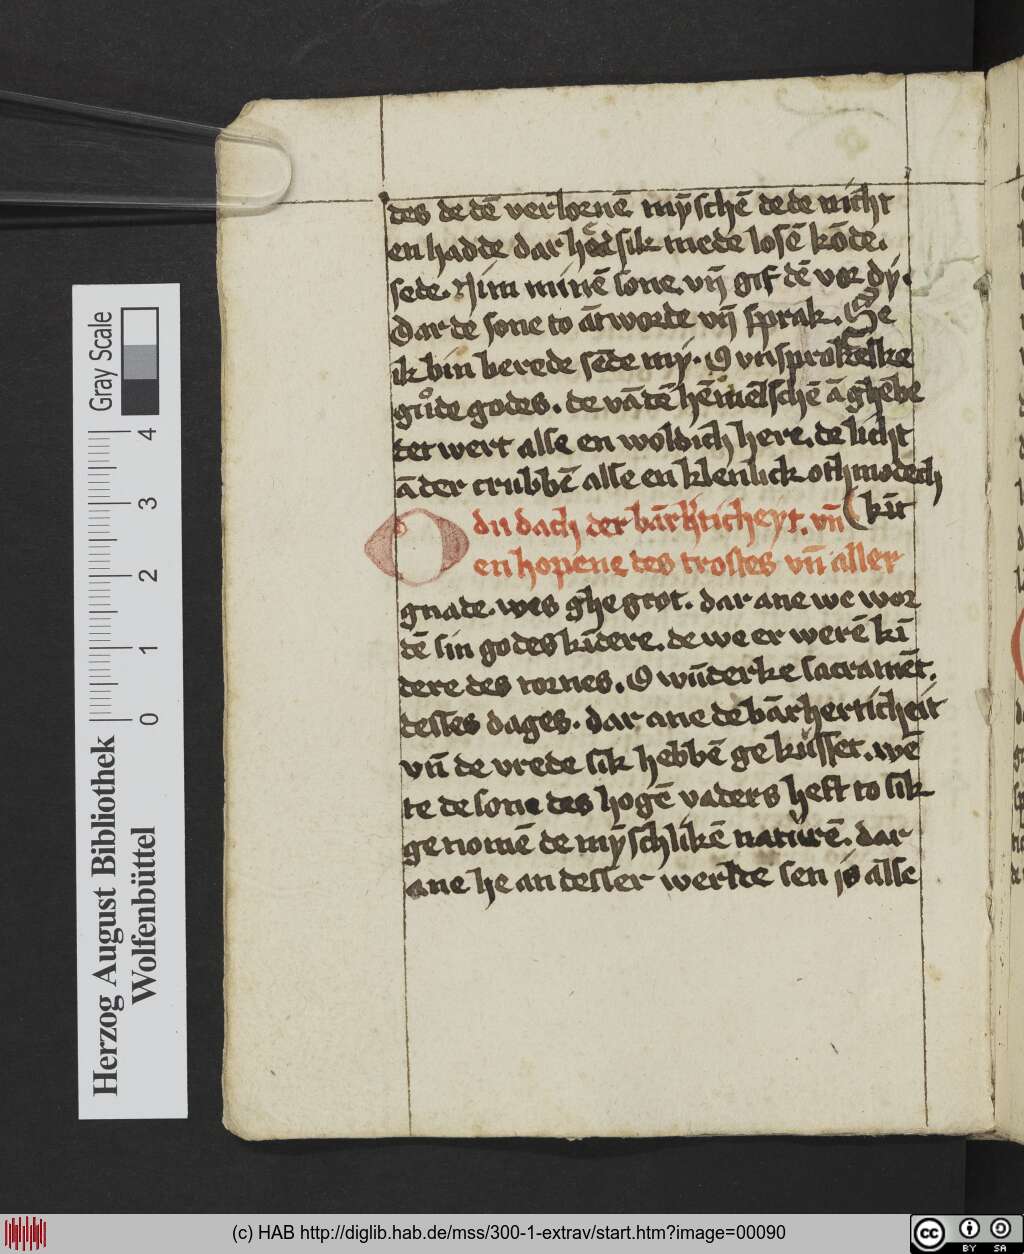 des de dē verlornē mȳschē dede nicht
en hadde dar hed sik mede losē kōde.
sede. Nim minē sone. vn̄ gif dē vor dy.
Dar de sone to ātworde vn̄ sprak. Se
ik bin berede sēde my. O vnsprokelke
gůde godes. de vā dē hēmelschē ā ghebe
det wert alse en woldich here. de licht
ā der crubbē alse en klenlick othmodech
kīt
O du dach der bārherticheyt. vn̄
en hopene des trostes vn̄ aller
gnade. wes ghegrot. dar ane we wor
dē sin godes kīdere. de we er werē kī
dere des tornes. O wūderke sacramēt.
desses dages. dar ane de bārherticheit
vn̄ de vrede sik hebbē ge kusset. wē
te de sone des hogē vaders heft to sik
ge nomē de mȳschlikē naturē. dar
ane he an desser werlde sen is alse
Herzog August Bibliothek
Wolfenbüttel
Gray Scale
0 1 2 3 4
(c) HAB http://diglib.hab.de/mss/300-1-extrav/start.htm?image=00090
cc BY SA